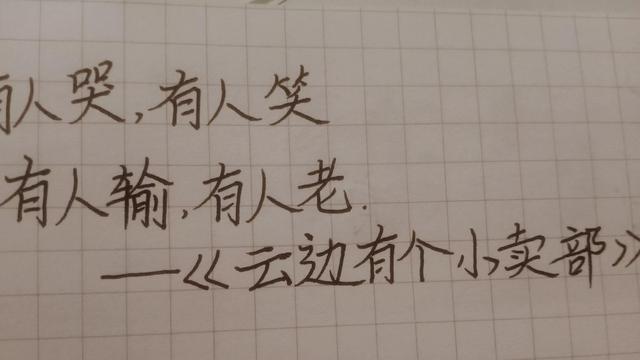 有人哭,有人笑
有人输,有人老.
——《云边有个小卖部》